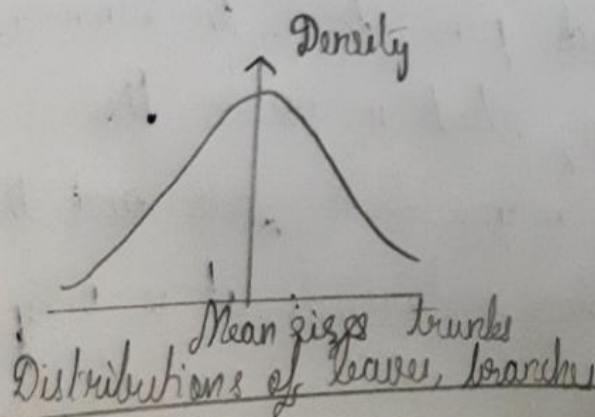 Density
Mean sizes trunks
Distributions of leaves, branche